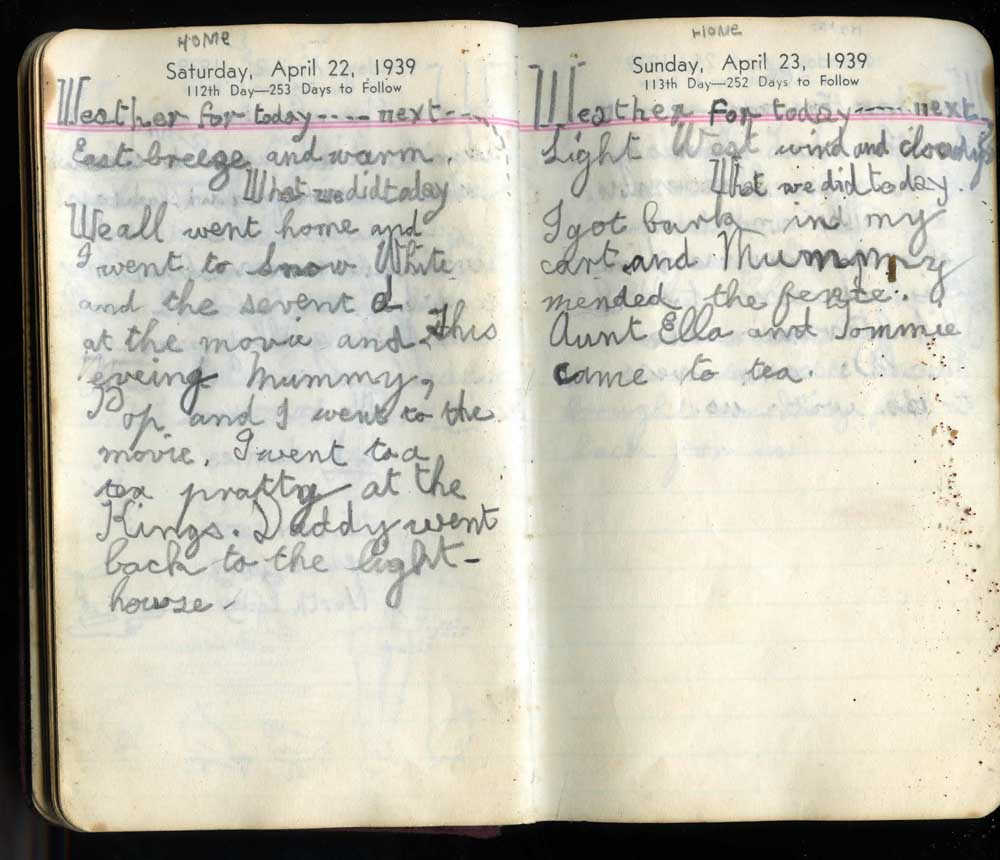 HOME
Saturday, April 22, 1939
112th Day—253 Days to Follow
Weather for today---- next---
East breeze and warm
What we did today
We all went home and
I went to Snow White
and the sevent d
at the movie and. This
eveing Mummy,
Pop and I went to the
movie. I went to a
tea pratty at the
Kings. Daddy went
back to the light-
house.
HOME
Sunday, April 23, 1939
113th Day—252 Days to Follow
Weather for today---- next
Light West wind and cloudy
What we did today.
I got bark in my
cart and Mummy
mended the fence.
Aunt Ella and Tommie
came to tea